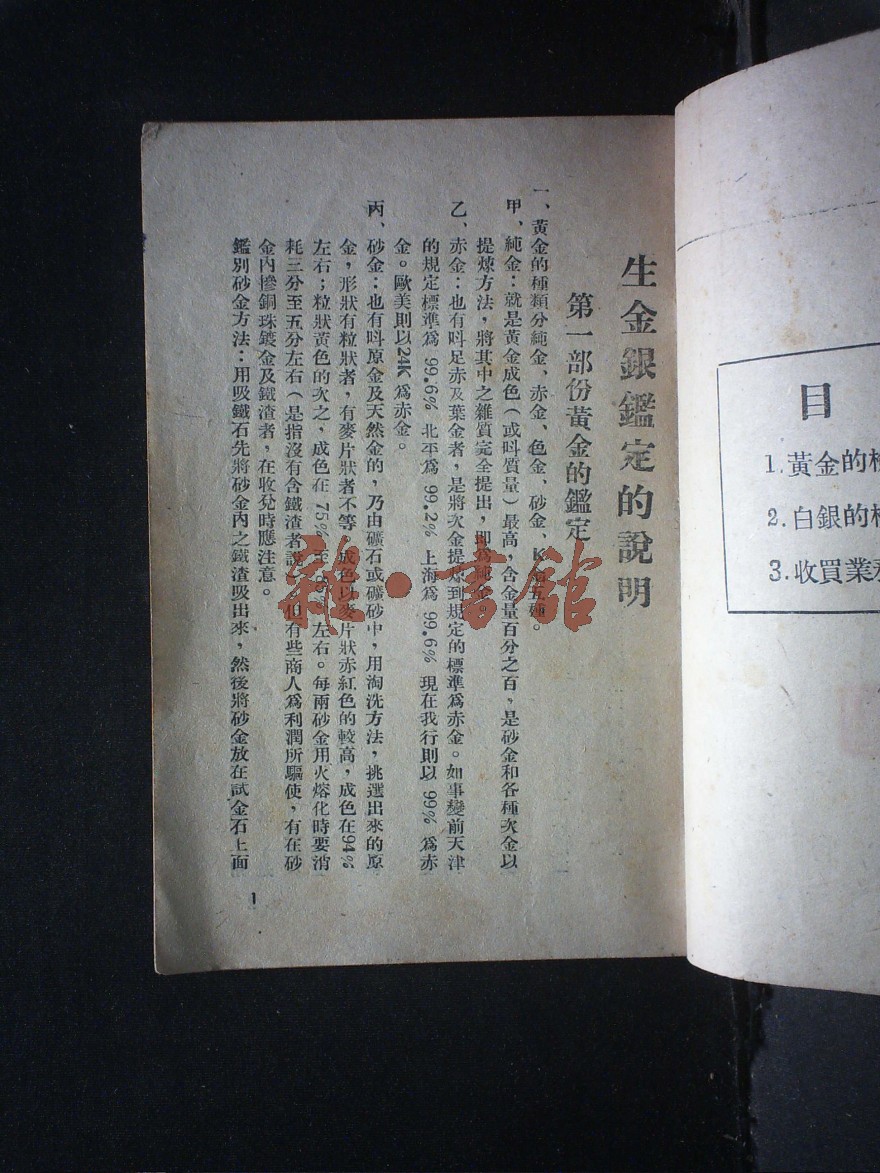 生金銀鑑定的說明
第一部份黃金的鑑定
一、黃金的種類分純金、赤金、色金、砂金、K金五種。
甲、純金：就是黃金成色（或呌質量）最高，含金量百分之百，是砂金和各種次金以
提煉方法，將其中之雜質完全提出，即為純金。
乙、赤金：也有呌足赤及葉金者，是將次金提煉到規定的標準為赤金。如事變前天津
的規定標準爲 99.6% 北平爲 99.2% 上海爲 99.6% 現在我行則以 99% 爲赤
金。歐美則以24K 爲赤金。
丙、砂金：也有呌原金及天然金的，乃由礦石或礦砂中，用淘洗方法，挑選出來的原
金，形狀有粒狀者，有麥片狀者不等，成色以麥片狀赤紅色的較高，成色在94%
左右；粒狀黃色的次之，成色在 75% 至 左右。每兩砂金用火熔化時要消
耗三分至五分左右（是指沒有含鐵渣者說），但有些商人爲利潤所驅使，有在砂
金內摻銅珠鍍金及鐵渣者，在收兌時應注意。
鑑別砂金方法：用吸鐵石先將砂金內之鐵渣吸出來，然後將砂金放在試金石上面
1
目
1.黃金的
2.白銀的
3.收買業
雜·書館